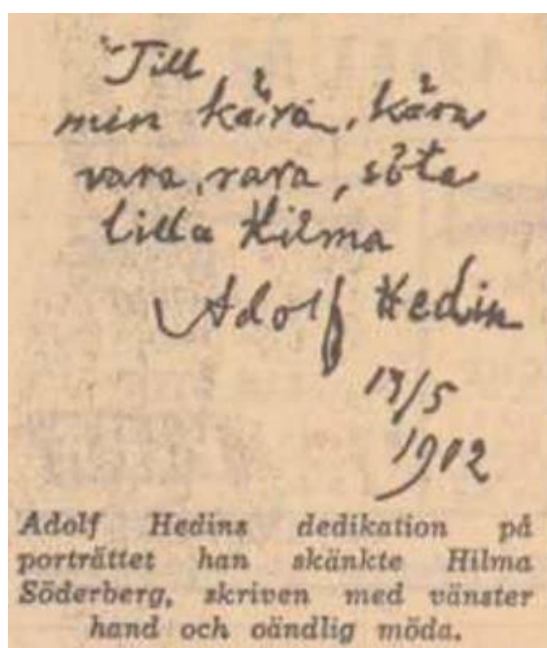 Till
min kära, kära
rara, rara, söta
lilla Hilma
Adolf Hedin
19/5
1902
Adolf Hedins dedikation på
porträttet han skänkte Hilma
Söderberg, skriven med vänster
hand och oändlig möda.